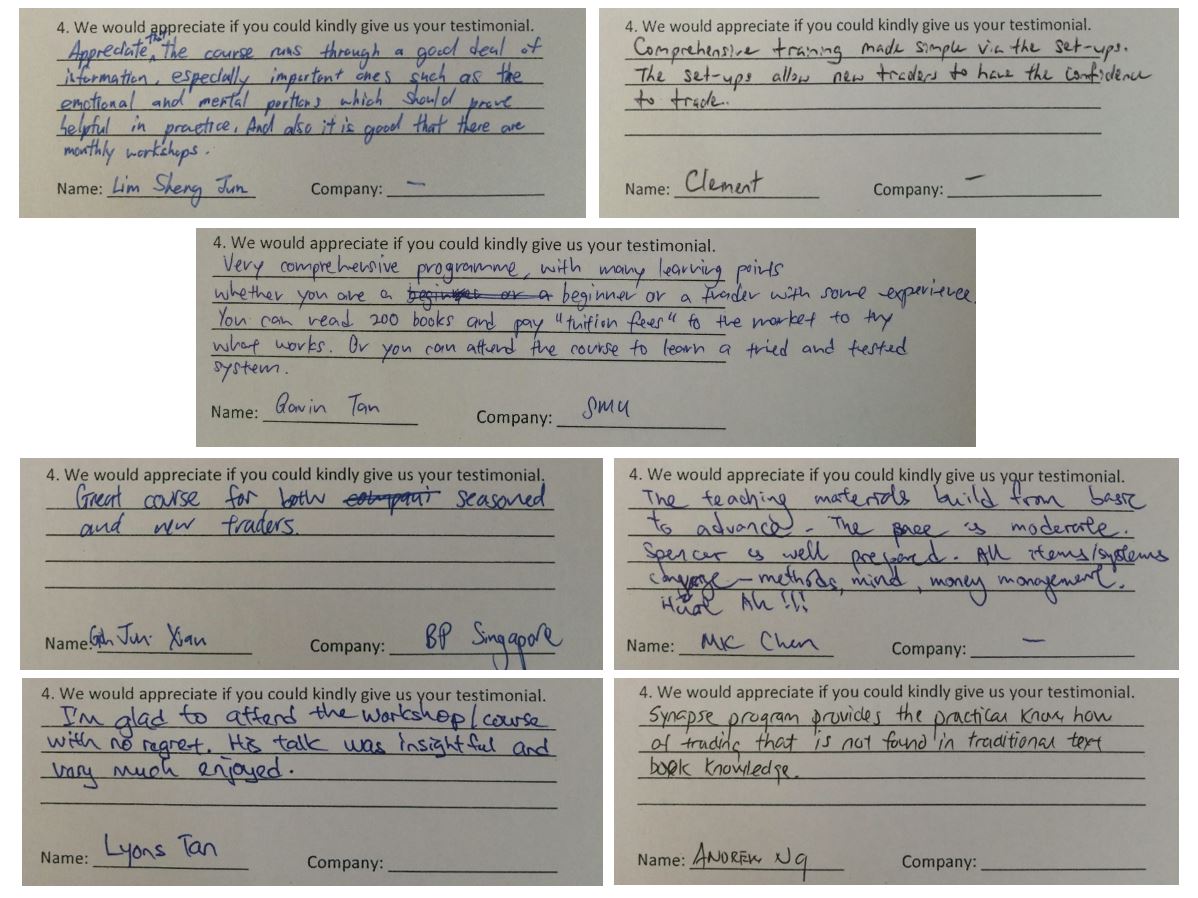 4. We would appreciate if you could kindly give us your testimonial.
Appreciate that the course runs through a good deal of
information, especially important ones such as the
emotional and mental portions which should prove
helpful in practice. And also it is good that there are
monthly workshops.
Name: Lim Sheng Jun Company: –
4. We would appreciate if you could kindly give us your testimonial.
Comprehensive training made simple via the set-ups.
The set-ups allow new traders to have the confidence
to trade.
Name: Clement Company: –
4. We would appreciate if you could kindly give us your testimonial.
Very comprehensive programme, with many learning points
whether you are a beginner or a beginner or a trader with some experience.
You can read 200 books and pay "tuition fees" to the market to try
what works. Or you can attend the course to learn a tried and tested
system.
Name: Gavin Tan Company: SMU
4. We would appreciate if you could kindly give us your testimonial.
Great course for both seasoned
and new traders.
Name: Goh Jun Xian Company: BP Singapore
4. We would appreciate if you could kindly give us your testimonial.
The teaching materials build from basic
to advance. The pace is moderate.
Spencer is well prepared. All items/systems
converge – methods, mind, money management.
Huat Ah !!!
Name: MK Chen Company: –
4. We would appreciate if you could kindly give us your testimonial.
I'm glad to attend the workshop/course
with no regret. His talk was insightful and
very much enjoyed.
Name: Lyons Tan Company:
4. We would appreciate if you could kindly give us your testimonial.
Synapse program provides the practical know how
of trading that is not found in traditional text
book knowledge.
Name: ANDREW NG Company: